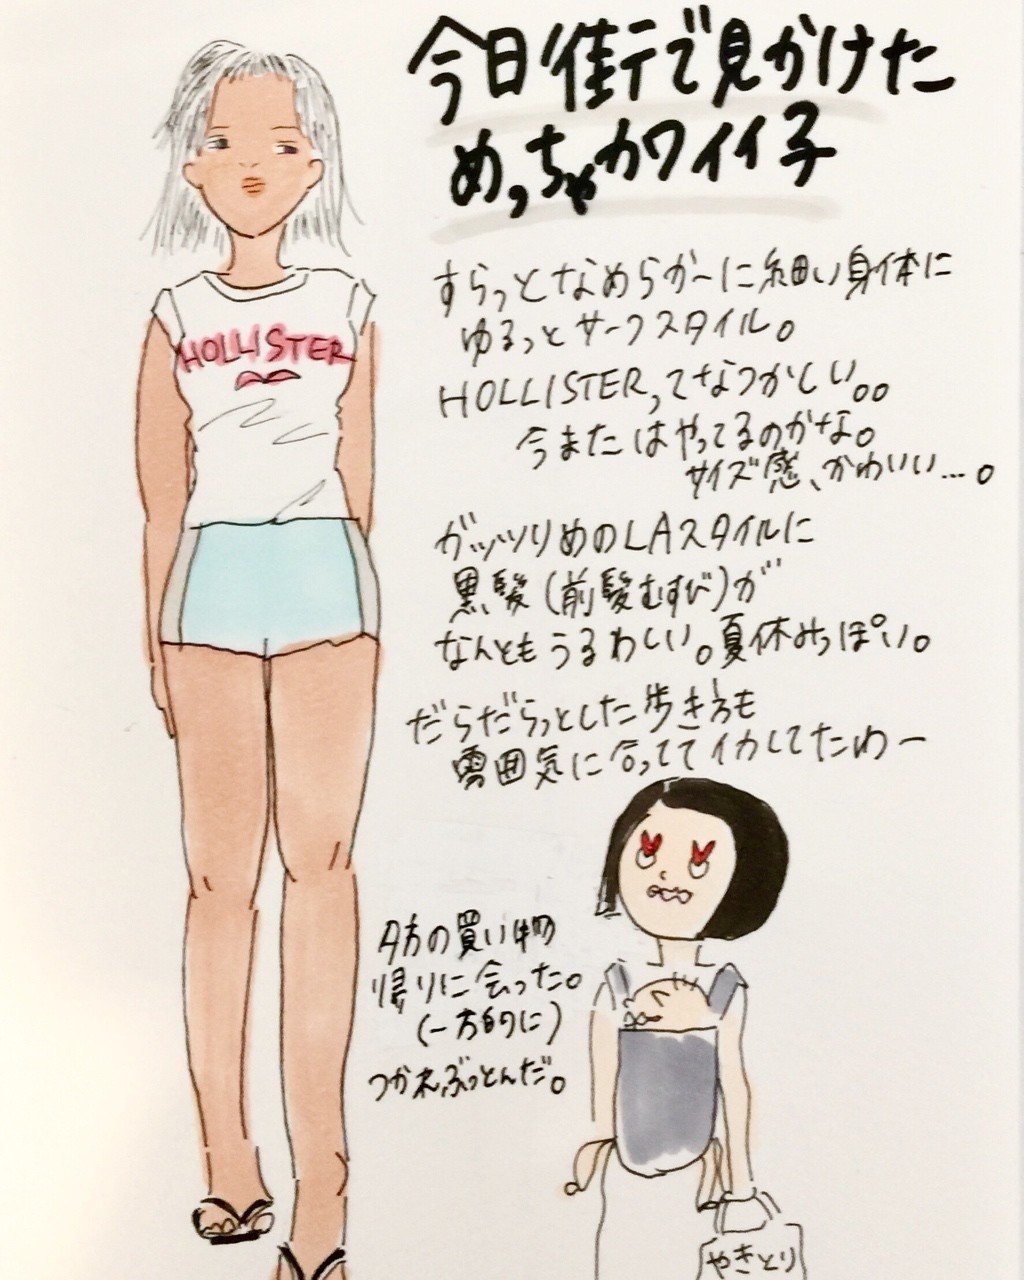 今日街で見かけた
めっちゃカワイイ子
すらっとなめらかーに細い身体に
ゆるっとサーフスタイル。
HOLLISTERってなつかしい。。
今またはやってるのかな。
サイズ感、かわいい…。
ガッツリめのLAスタイルに
黒髪(前髪むすび)が
なんともうるわしい。夏休みっぽい。
だらだらっとした歩き方も
雰囲気に合っててイカしてたわー
HOLLISTER
夕方の買い物
帰りに会った。
(一方的に)
つかれぶっとんだ。
やきとり